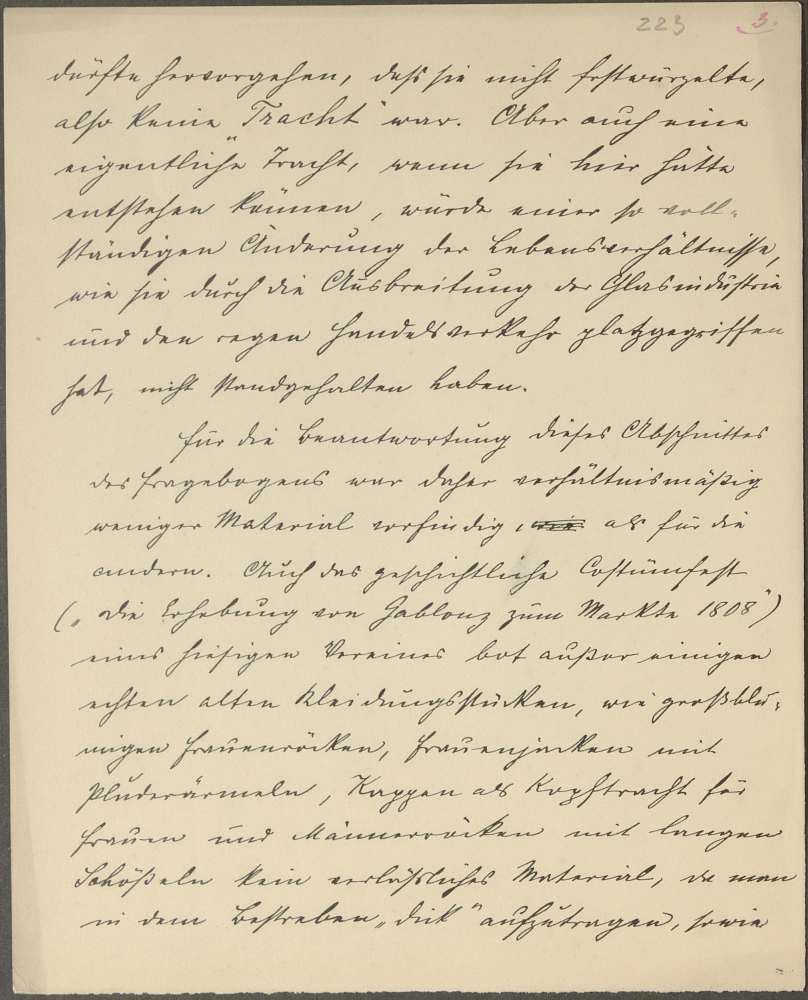 223 3.
dürfte hervorgehen, dass sie nicht festwurzelte,
also keine „Tracht" war. Aber auch eine
eigentliche Tracht, wenn sie hier hätte
entstehen können, würde einer so voll-
ständigen Änderung der Lebensverhältnisse,
wie sie durch die Ausbreitung der Glasindustrie
und den regen Handelsverkehr platzgegriffen
hat, nicht standgehalten haben.
Für die Beantwortung dieses Abschnittes
des Fragebogens war daher verhältnismäßig
weniger Material vorfindig, wie als für die
andern. Auch das geschichtliche Costümfest
(„Die Erhebung von Gablonz zum Markte 1808")
eines hiesigen Vereines bot außer einigen
echten alten Kleidungsstücken, wie großblu-
migen Frauenröcken, Frauenjacken mit
Pluderärmeln, Kappen als Kopftracht für
Frauen und Männerröcken mit langen
Schößeln kein verläßliches Material, da man
in dem Bestreben „dick" aufzutragen, sowie